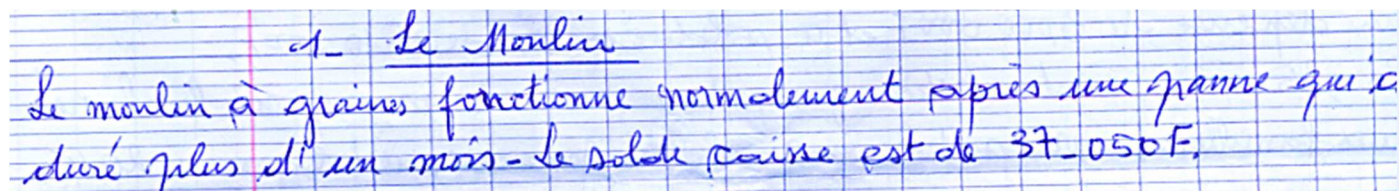 1- Le Moulin
Le moulin à graines fonctionne normalement après une panne qui a
duré plus d'un mois - Le solde caisse est de 37-050F.